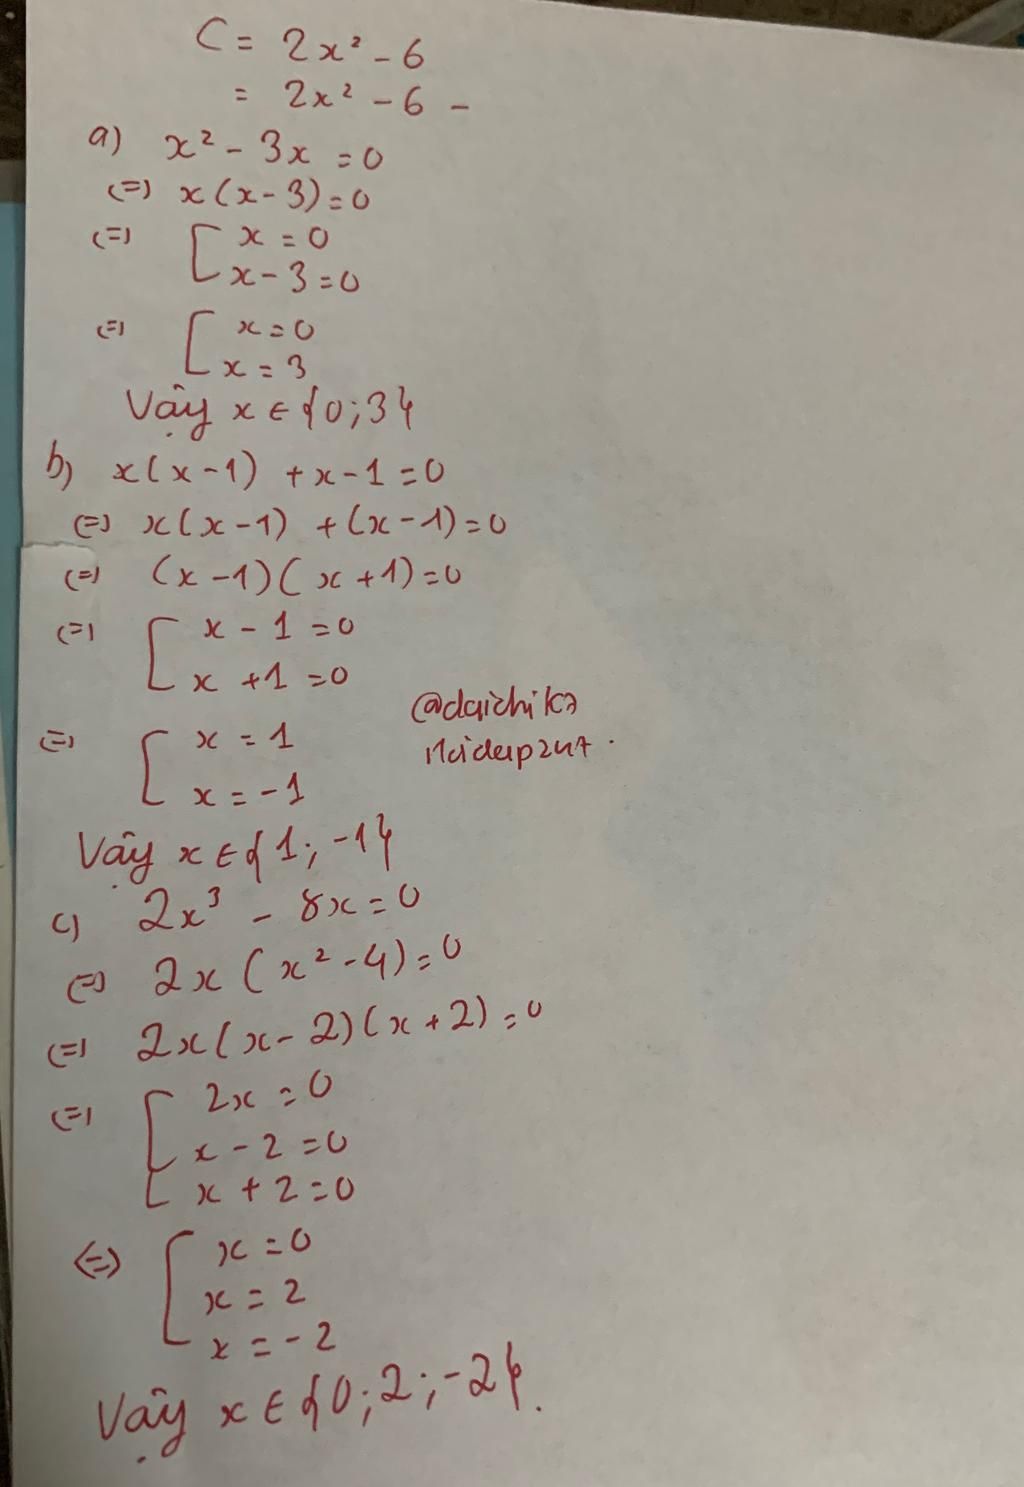 C = 2x² - 6
= 2x² - 6 -
a) x² - 3x = 0
(=) x(x - 3) = 0
(=) [ x = 0
x - 3 = 0
(=) [ x = 0
x = 3
Vậy x ∈ {0; 3}
b) x(x - 1) + x - 1 = 0
(=) x(x - 1) + (x - 1) = 0
(=) (x - 1)(x + 1) = 0
(=) [ x - 1 = 0
x + 1 = 0
(=) [ x = 1
x = -1
@daichika
Vậy x ∈ {1; -1}
c) 2x³ - 8x = 0
(=) 2x(x² - 4) = 0
(=) 2x(x - 2)(x + 2) = 0
(=) [ 2x = 0
x - 2 = 0
x + 2 = 0
(=) [ x = 0
x = 2
x = -2
Vậy x ∈ {0; 2; -2}.